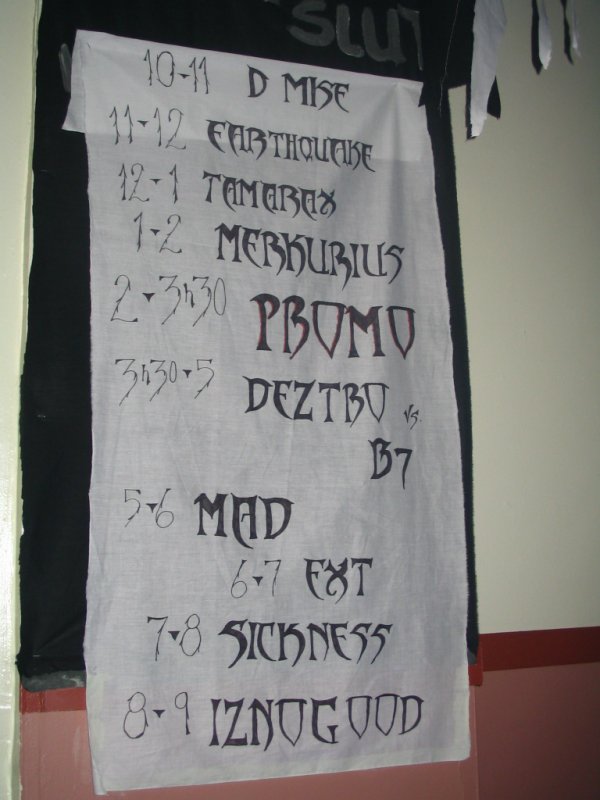 SLUT
10-11 D MISE
11-12 EARTHQUAKE
12-1 TAMARAX
1-2 MERKURIUS
2-3h30 PROMO
3h30-5 DEZTRO vs.
B7
5-6 MAD
6-7 EXT
7-8 SICKNESS
8-9 IZNOGOOD